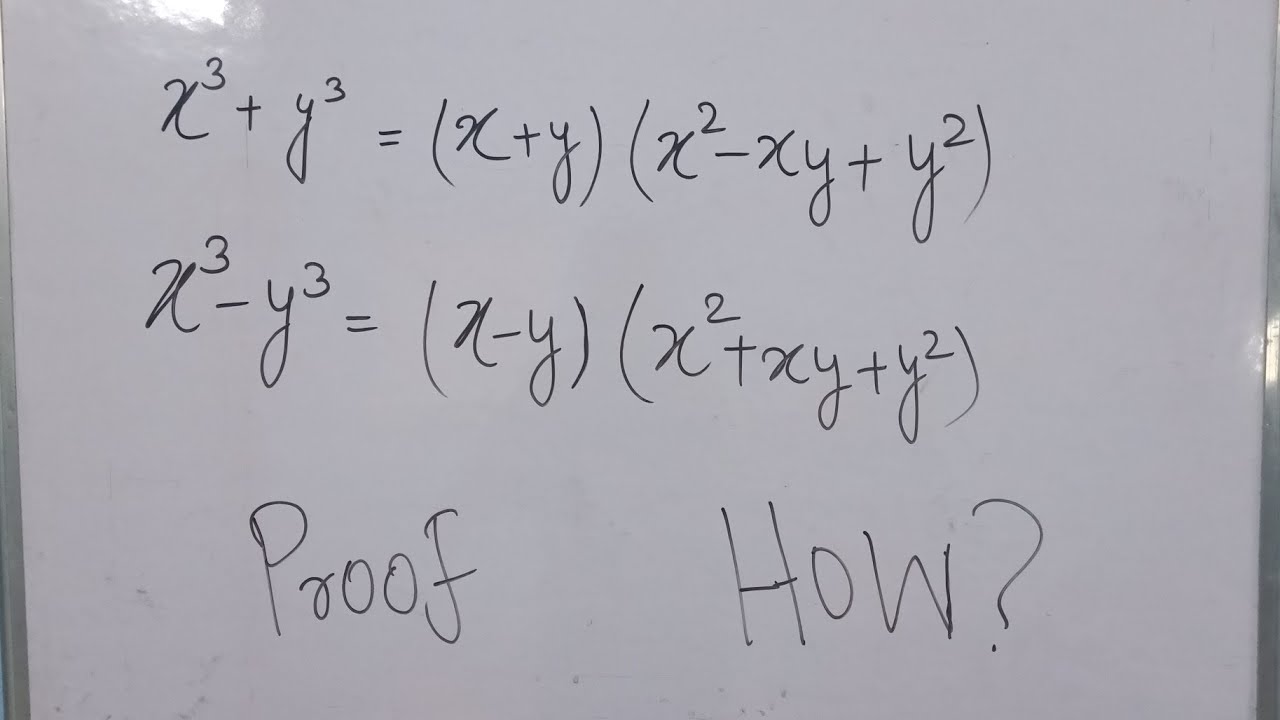 x³ + y³ = (x+y) (x² - xy + y²)
x³ - y³ = (x-y) (x² + xy + y²)
Proof HOW?